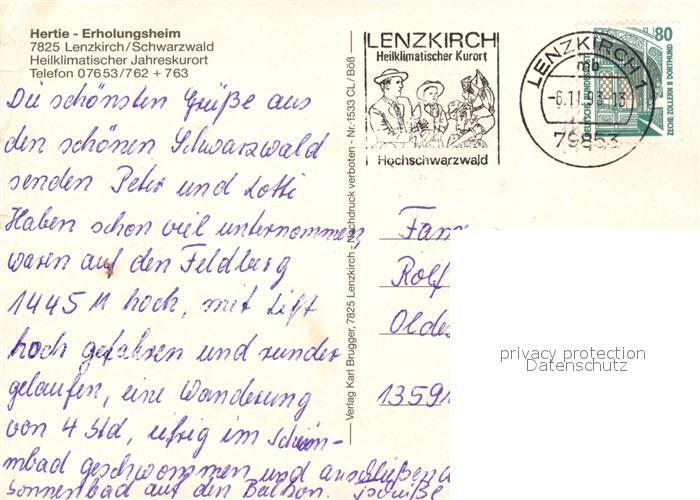 Hertie - Erholungsheim
7825 Lenzkirch/Schwarzwald
Heilklimatischer Jahreskurort
Telefon 07653/762 + 763
Die schönsten Grüße aus
den schönen Schwarzwald
senden Peter und Lotti
Haben schon viel unternommen,
waren auf den Feldberg
1445 M hoch, mit Lift
hoch gefahren und runder
gelaufen, eine Wanderung
von 4 Std, eifrig im Schwim-
mbad geschwommen und anschließend
Sonnenbad auf den Balkon.
Verlag Karl Brugger, 7825 Lenzkirch - Nachdruck verboten - Nr. 1533 CL/Böß
LENZKIRCH
Heilklimatischer Kurort
Hochschwarzwald
LENZKIRCH 1
mb
-6.11.93-13
79853
80
DEUTSCHE BUNDESPOST
ZECHE ZOLLERN II DORTMUND
Fam
Rolf
Oldes
13591
privacy protection
Datenschutz